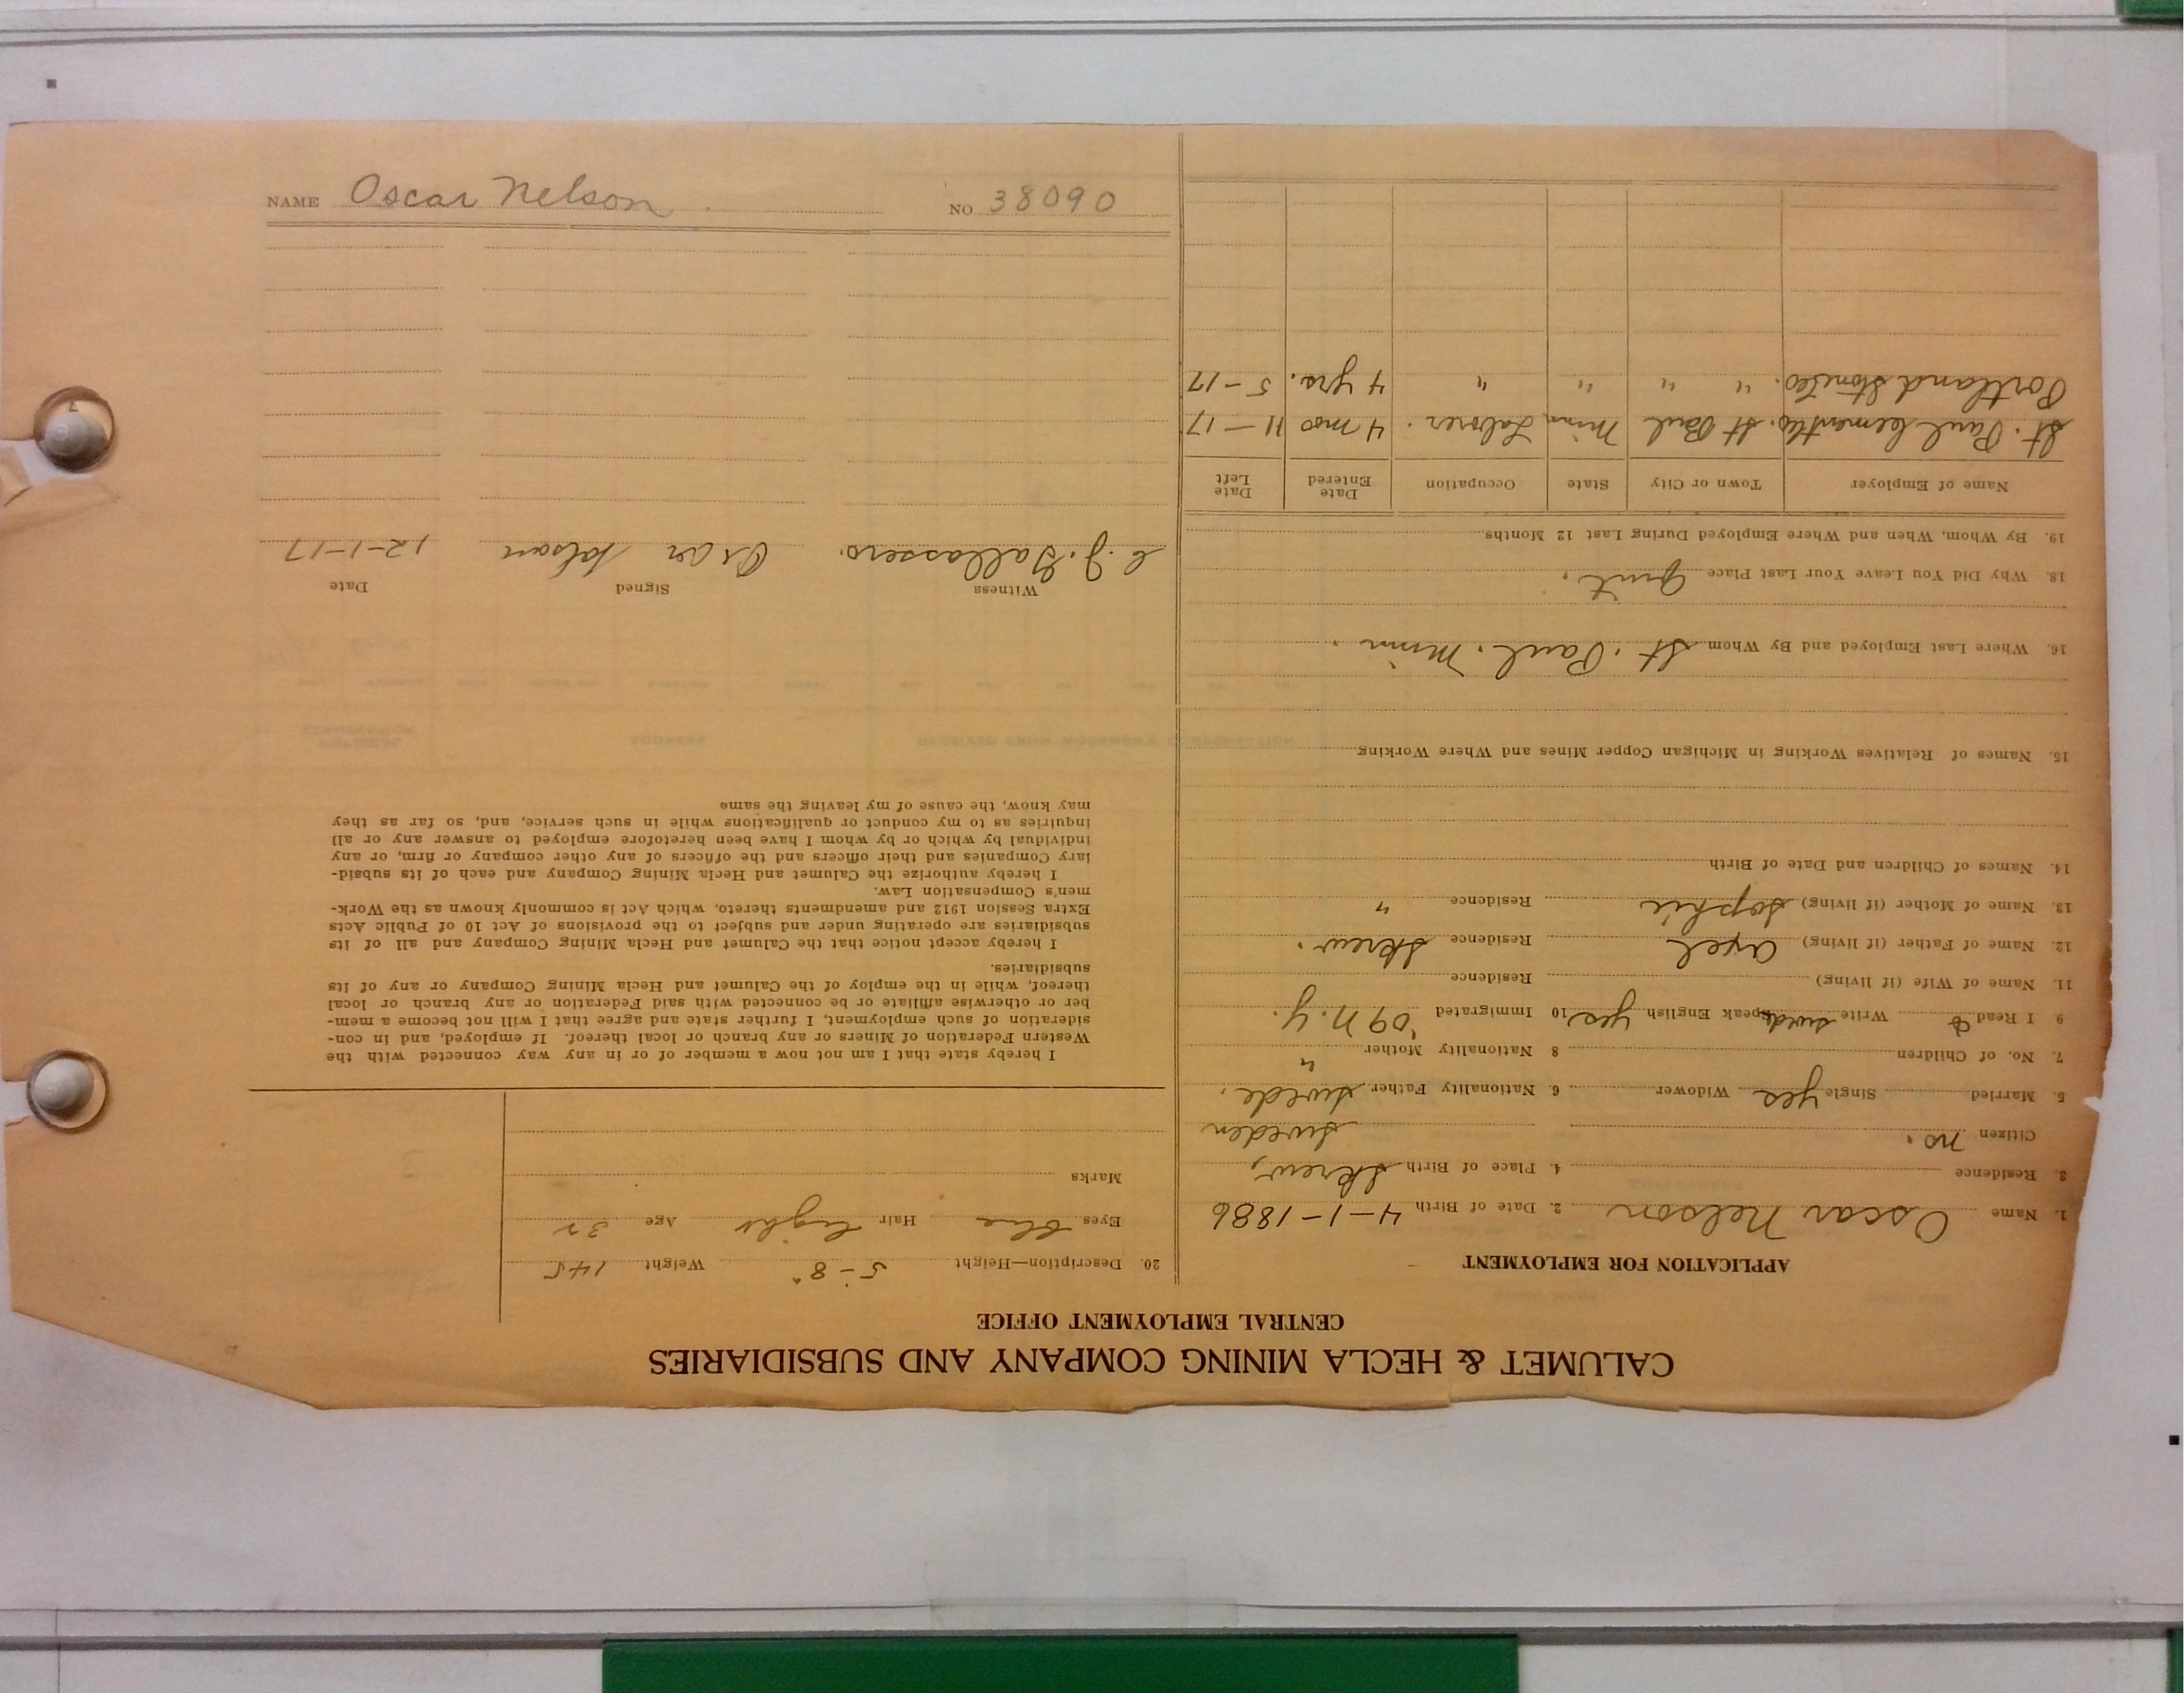 NAME Oscar Nelson NO 38090
CALUMET & HECLA MINING COMPANY AND SUBSIDIARIES
CENTRAL EMPLOYMENT OFFICE
APPLICATION FOR EMPLOYMENT
1. Name Oscar Nelson 2. Date of Birth 4-1-1886
3. Residence 4. Place of Birth Skrew,
Citizen no. Sweden
5. Married Single yes Widower 6. Nationality Father Swede.
7. No. of Children 8 Nationality Mother "
9 I Read & Write Swede Speak English yes 10 Immigrated '09 N.Y.
11. Name of Wife (if living) Residence
12. Name of Father (if living) Axel Residence Skrew.
13. Name of Mother (if living) Sophie Residence "
14. Names of Children and Date of Birth
15. Names of Relatives Working in Michigan Copper Mines and Where Working
16. Where Last Employed and By Whom St. Paul. Minn.
18. Why Did You Leave Your Last Place Quit.
19. By Whom, When and Where Employed During Last 12 Months
Name of Employer Town or City State Occupation Date Entered Date Left
St. Paul Cement Co. St Paul Minn Laborer. 4 mos 11-17
Portland Stone Co. " " " " 4 yrs. 5-17
20. Description—Height 5-8" Weight 145
Eyes blue Hair light Age 32
Marks
I hereby state that I am not now a member of or in any way connected with the
Western Federation of Miners or any branch or local thereof. If employed, and in con-
sideration of such employment, I further state and agree that I will not become a mem-
ber or otherwise affiliate or be connected with said Federation or any branch or local
thereof, while in the employ of the Calumet and Hecla Mining Company or any of its
subsidiaries.
I hereby accept notice that the Calumet and Hecla Mining Company and all of its
subsidiaries are operating under and subject to the provisions of Act 10 of Public Acts
Extra Session 1912 and amendments thereto, which Act is commonly known as the Work-
men's Compensation Law.
I hereby authorize the Calumet and Hecla Mining Company and each of its subsid-
iary Companies and their officers and the officers of any other company or firm, or any
individual by which or by whom I have been heretofore employed to answer any or all
inquiries as to my conduct or qualifications while in such service, and, so far as they
may know, the cause of my leaving the same
Witness Signed Date
C. J. Gallassero. Oscar Nelson 12-1-17